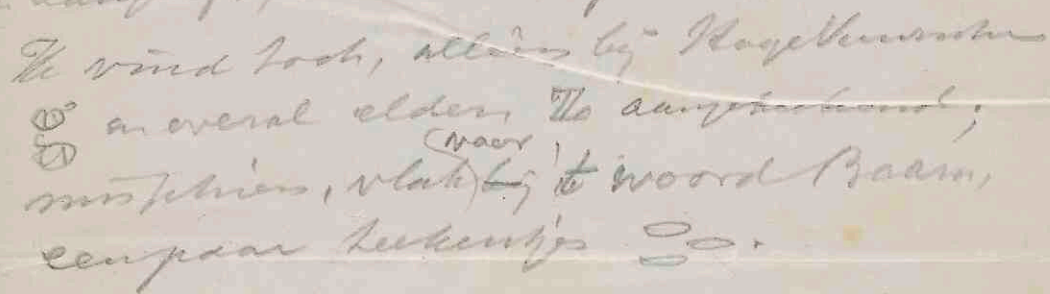 Ik vind toch, alleen bij Hage
en overal elders aangeteekend;
(naar)
misschien, vlak bij 't woord Baarn,
een paar teekentjes